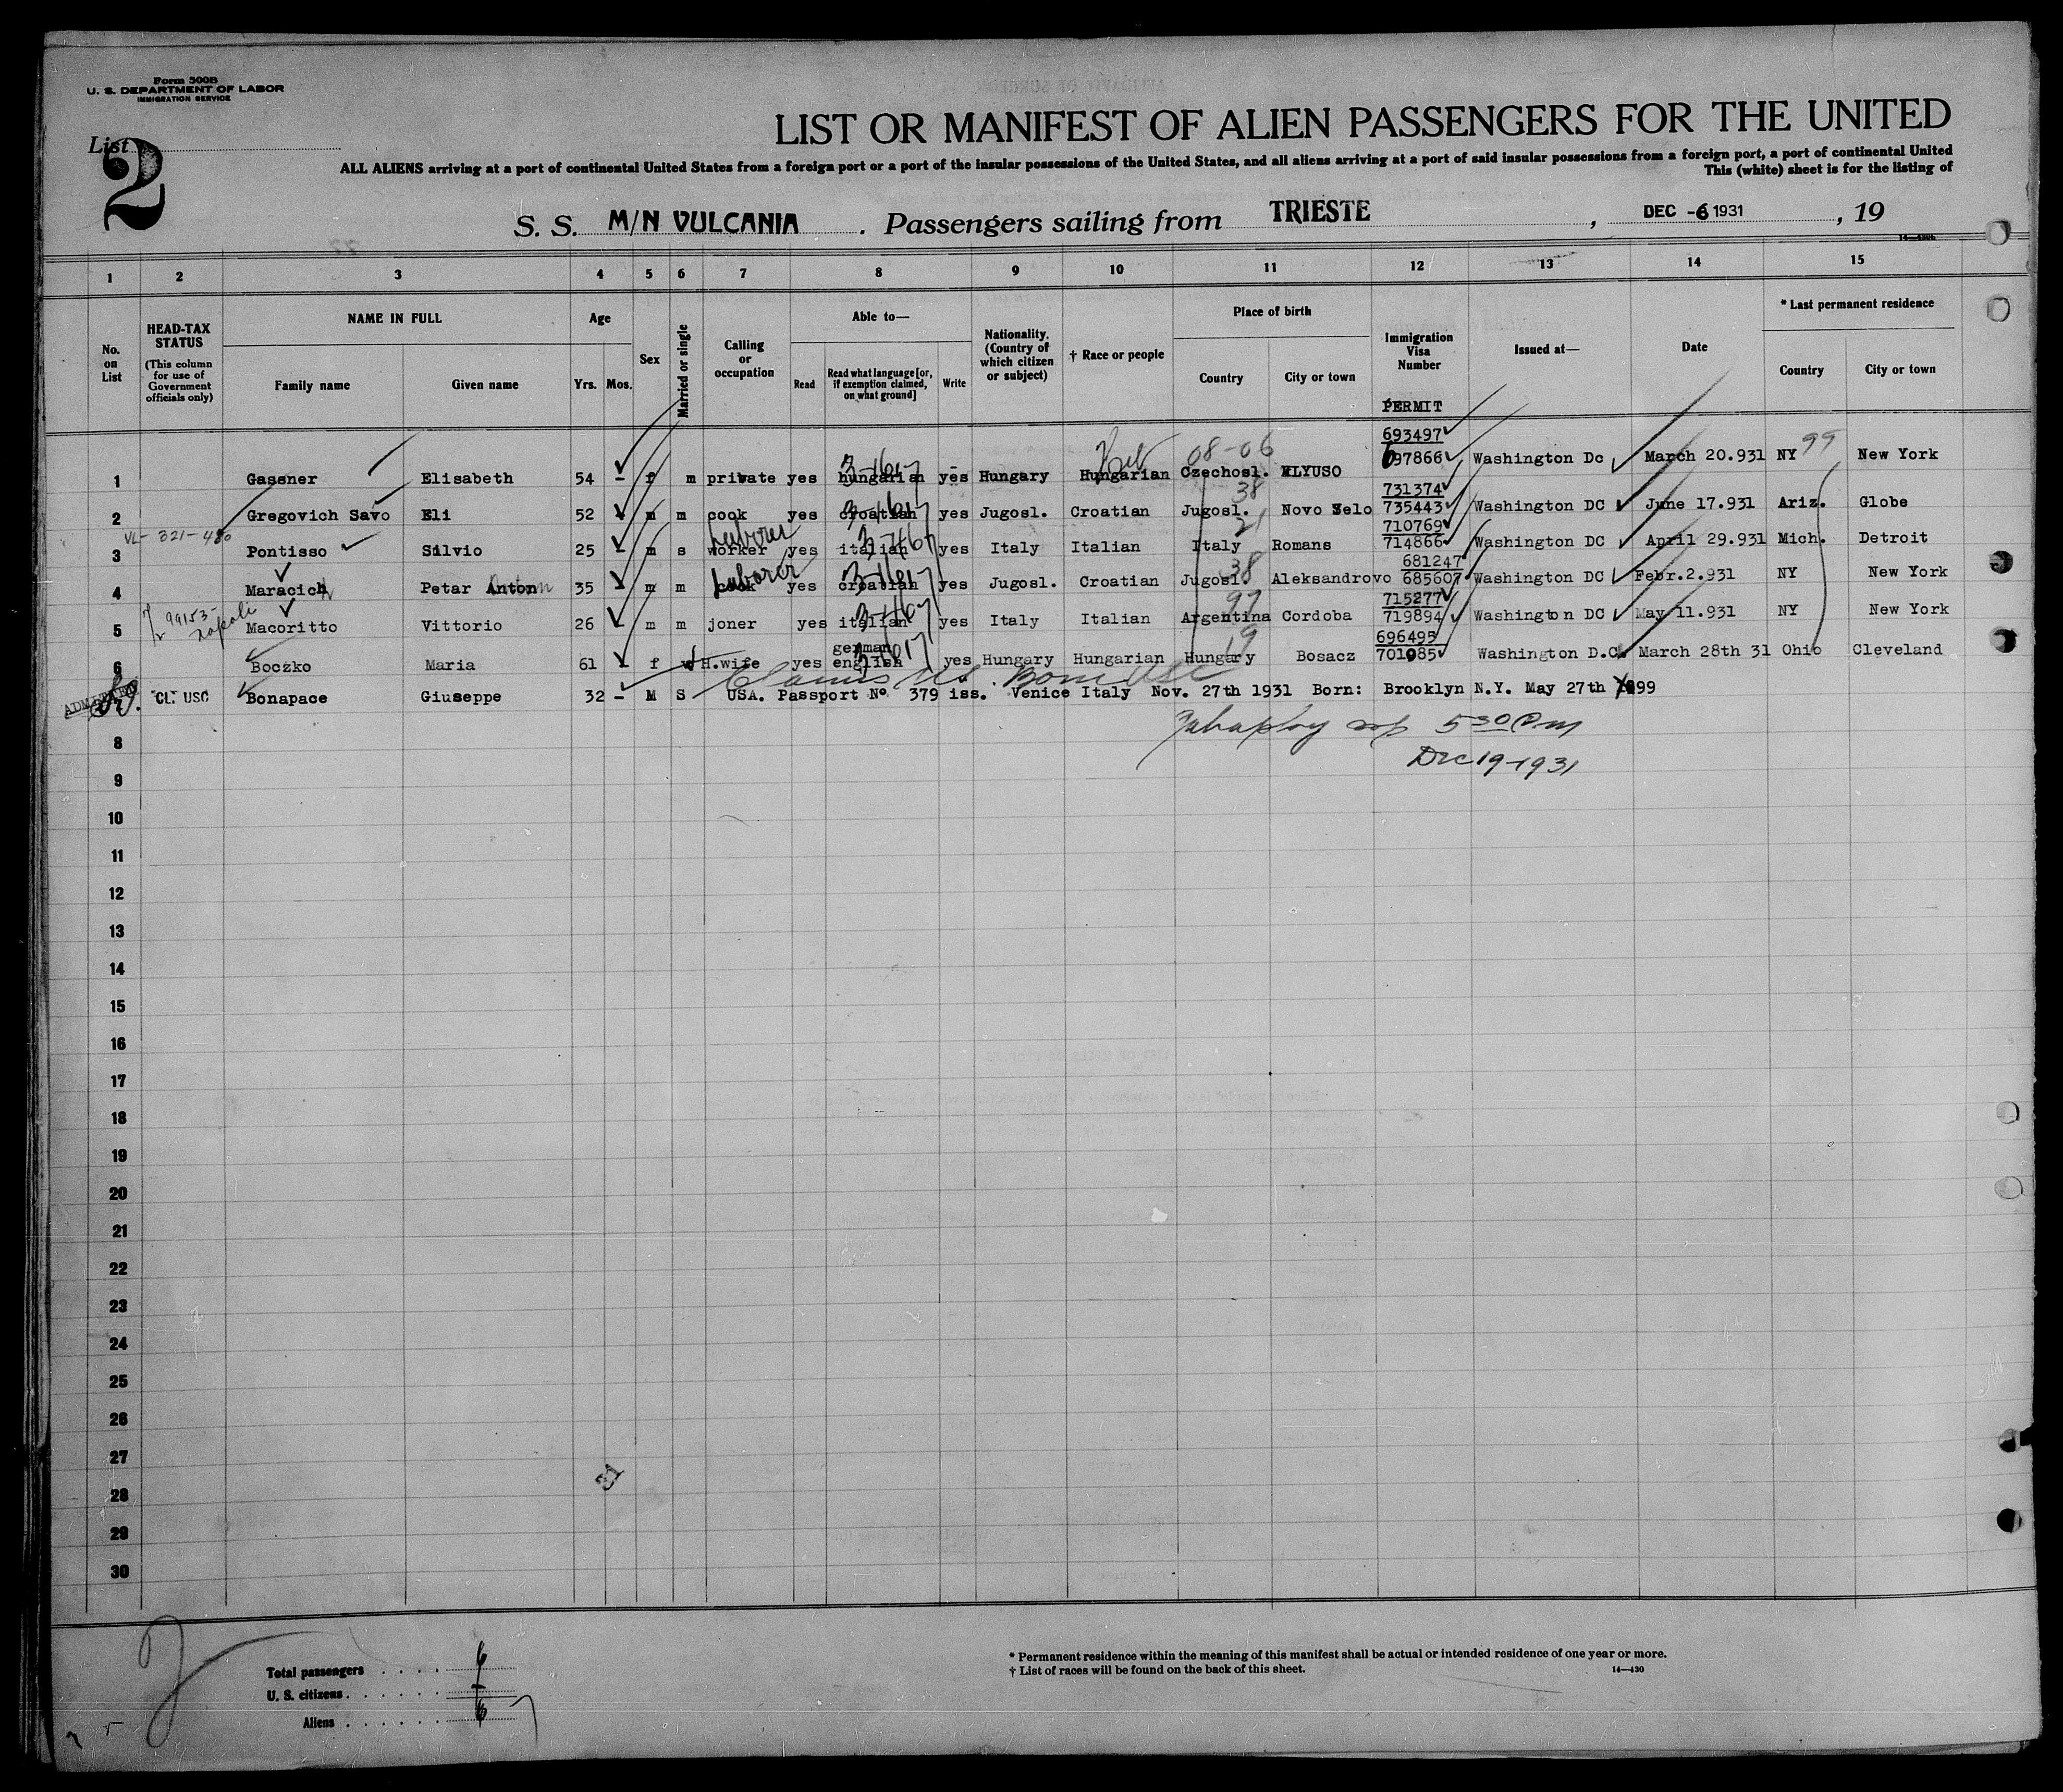 Form 500B
U. S. DEPARTMENT OF LABOR
IMMIGRATION SERVICE
List
2
LIST OR MANIFEST OF ALIEN PASSENGERS FOR THE UNITED
ALL ALIENS arriving at a port of continental United States from a foreign port or a port of the insular possessions of the United States, and all aliens arriving at a port of said insular possessions from a foreign port, a port of continental United
This (white) sheet is for the listing of
S. S. M/N VULCANIA . Passengers sailing from TRIESTE , DEC -6 1931 , 19
14—430b
1 2 3 4 5 6 7 8 9 10 11 12 13 14 15
No. on List
HEAD-TAX STATUS
(This column for use of Government officials only)
NAME IN FULL
Family name Given name
Age
Yrs. Mos.
Sex
Married or single
Calling or occupation
Able to—
Read Read what language [or, if exemption claimed, on what ground] Write
Nationality. (Country of which citizen or subject)
† Race or people
Place of birth
Country City or town
Immigration Visa Number
PERMIT
Issued at—
Date
* Last permanent residence
Country City or town
08-06 693497 99
1 Gassner Elisabeth 54 - f m private yes hungarish yes Hungary Hungarian Czechosl. 697866 Washington Dc March 20.931 NY New York
38 731374
2 Gregovich Savo Eli 52 - m m cook yes croatian yes Jugosl. Croatian Jugosl. Novo Selo 735443 Washington DC June 17.931 Ariz. Globe
VL- 321-480 Laborer 21 710769
3 Pontisso Silvio 25 - m s worker yes italian yes Italy Italian Italy Romans 714866 Washington DC April 29.931 Mich. Detroit
Laborer 38 681247
4 Maracich Petar Anton 35 - m m cook yes croatian yes Jugosl. Croatian Jugosl. Aleksandrovo 685607 Washington DC Febr.2.931 NY New York
99153- Napoli 97 715277
5 Macoritto Vittorio 26 - m m joner yes italian yes Italy Italian Argentina Cordoba 719894 Washington DC May 11.931 NY New York
german 19 696495
6 Boczko Maria 61 - f w H.wife yes english yes Hungary Hungarian Hungary Bosacz 701985 Washington D.C. March 28th 31 Ohio Cleveland
Claims US. Born USC
ADMITTED CL: USC Bonapace Giuseppe 32 - M S USA. Passport No. 379 iss. Venice Italy Nov. 27th 1931 Born: Brooklyn N.Y. May 27th 1899
8 5 30 PM
Dec 19-1931
9
10
11
12
13
14
15
16
17
18
19
20
21
22
23
24
25
26
27
28
29
30
Total passengers
U. S. citizens
Aliens
* Permanent residence within the meaning of this manifest shall be actual or intended residence of one year or more.
† List of races will be found on the back of this sheet.
14—430